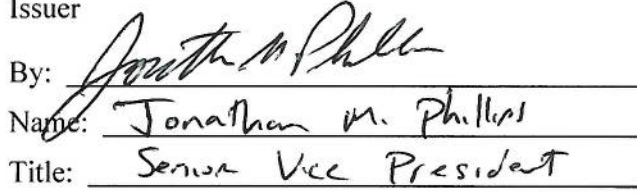 Issuer
By: Jonathan M. Phillips
Name: Jonathan M. Phillips
Title: Senior Vice President